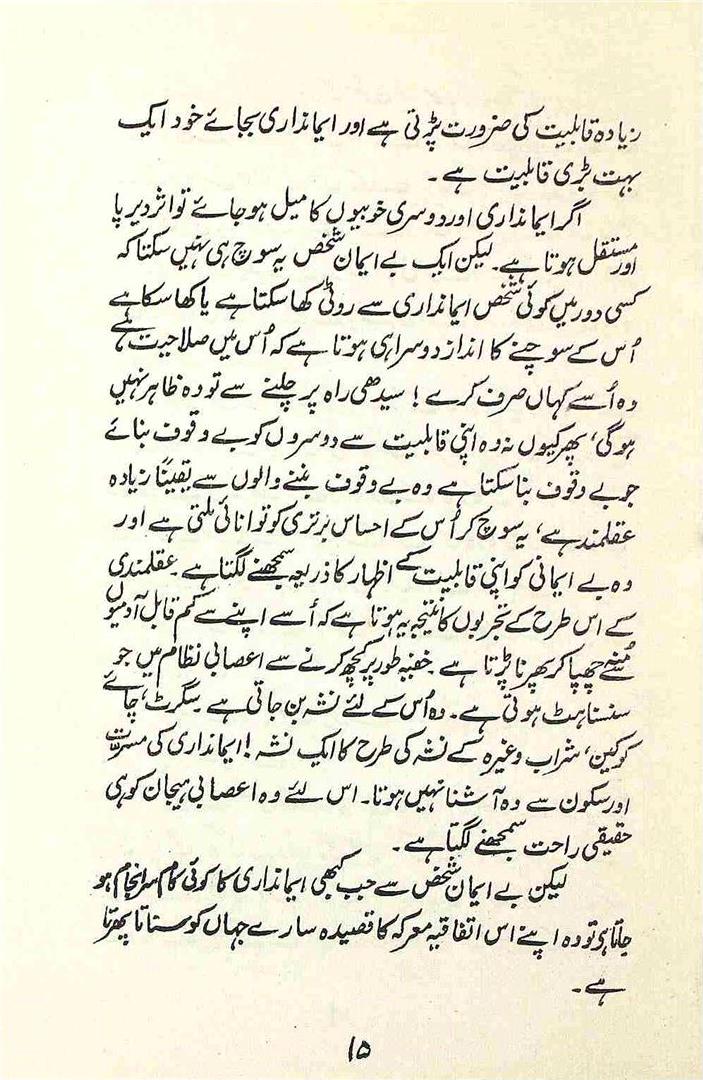 زیادہ قابلیت کی ضرورت پڑتی ہے اور ایمانداری بجائے خود ایک
بہت بڑی قابلیت ہے۔
اگر ایمانداری اور دوسری خوبیوں کا میل ہو جائے تو اثر دیر پا
اور مستقل ہوتا ہے۔ لیکن ایک بے ایمان شخص یہ سوچ ہی نہیں سکتا کہ
کسی دور میں کوئی شخص ایمانداری سے روٹی کھا سکتا ہے یا کھا سکا ہے
اُس کے سوچنے کا انداز دوسرا ہی ہوتا ہے کہ اُس میں صلاحیت ہے
وہ اُسے کہاں صرف کرے! سیدھی راہ پر چلنے سے تو وہ ظاہر نہیں
ہوگی، پھر کیوں نہ وہ اپنی قابلیت سے دوسروں کو بے وقوف بنائے
جو بے وقوف بنا سکتا ہے وہ بے وقوف بننے والوں سے یقیناً زیادہ
عقلمند ہے، یہ سوچ کر اُس کے احساس برتری کو توانائی ملتی ہے اور
وہ بے ایمانی کو اپنی قابلیت کے اظہار کا ذریعہ سمجھنے لگتا ہے۔ عقلمندی
کے اس طرح کے تجربوں کا نتیجہ یہ ہوتا ہے کہ اُسے اپنے سے کم قابل آدمیوں
مُنہ چھپا کر پھرنا پڑتا ہے۔ خفیہ طور پر کچھ کرنے سے اعصابی نظام میں جو
سنسناہٹ ہوتی ہے۔ وہ اُس کے لئے نشہ بن جاتی ہے۔ سگرٹ، چائے
کوکین، شراب وغیرہ کے نشہ کی طرح کا ایک نشہ! ایمانداری کی مسرّت
اور سکون سے وہ آشنا نہیں ہوتا۔ اس لئے وہ اعصابی ہیجان کو ہی
حقیقی راحت سمجھنے لگتا ہے۔
لیکن بے ایمان شخص سے جب کبھی ایمانداری کا کوئی کام سرانجام ہو
جاتا ہی تو وہ اپنے اس اتفاقیہ معرکہ کا قصیدہ سارے جہاں کو سناتا پھرتا
ہے۔
۱۵